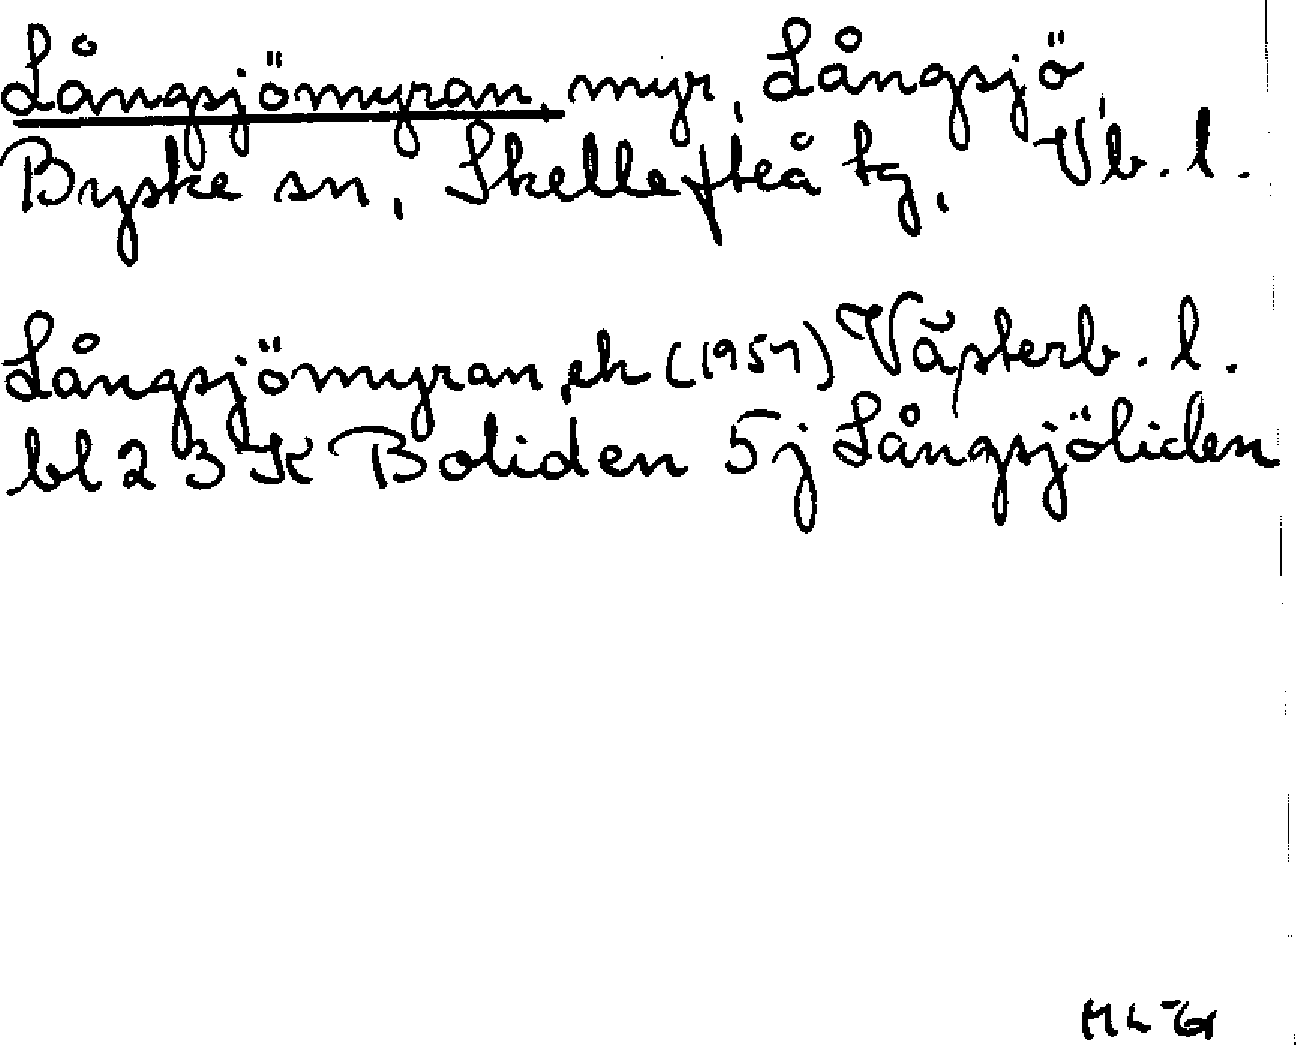 Långsjömyran, myr, Långsjö,
Byske sn, Skellefteå tg, Vb. l.
Långsjömyran, ek (1957) Västerb. l.
bl 23K Boliden 5j Långsjöliden